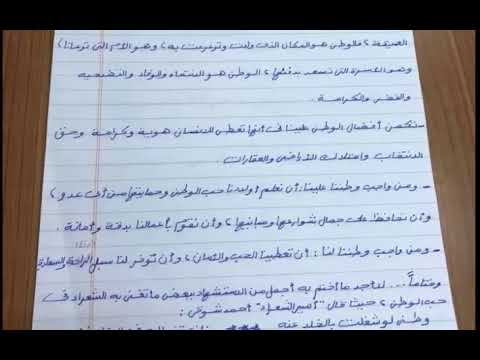 العميقة، فالوطن هو المكان الذى ولدت وترعرعت به، وهو الأم التى ترعانا،
وهو الأسرة التى نسعد بدفئها، الوطن هو الانتماء والوفاء والتضحية
والفخر والكرامة.
- تكمن أفضال الوطن علينا فى أنها تعطى للإنسان هوية وكرامة وحق
الانتخاب وامتلاك الأراضى والعقارات.
- ومن واجب وطننا علينا: أن نعلم أولادنا حب الوطن وحمايتها من أى عدو،
وأن نحافظ على جمال شوارعها ومبانيها، وأن نقوم بأعمالنا بدقة وأمانة.
- ومن واجب وطننا لنا: أن تعطينا الحب والأمان، وأن توفر لنا سبل الراحة والسعادة
وختاماً... لا أجد ما أختم به أجمل من الاستشهاد ببعض ما تغنى به الشعراء فى
حب الوطن، حيث قال "أمير الشعراء" أحمد شوقى:
وطنى لو شغلت بالخلد عنه